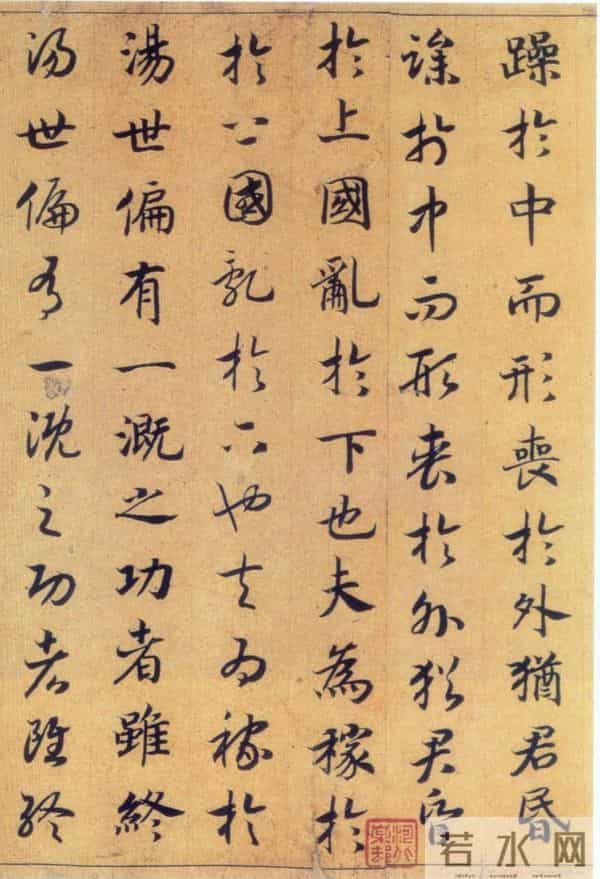 躁於中而形喪於外猶君昬
躁於中而形喪於外猶君昬
於上國亂於下也夫為稼於
於上國亂於下也夫為稼於
湯世偏有一溉之功者雖終
湯世偏有一溉之功者雖終
若水网